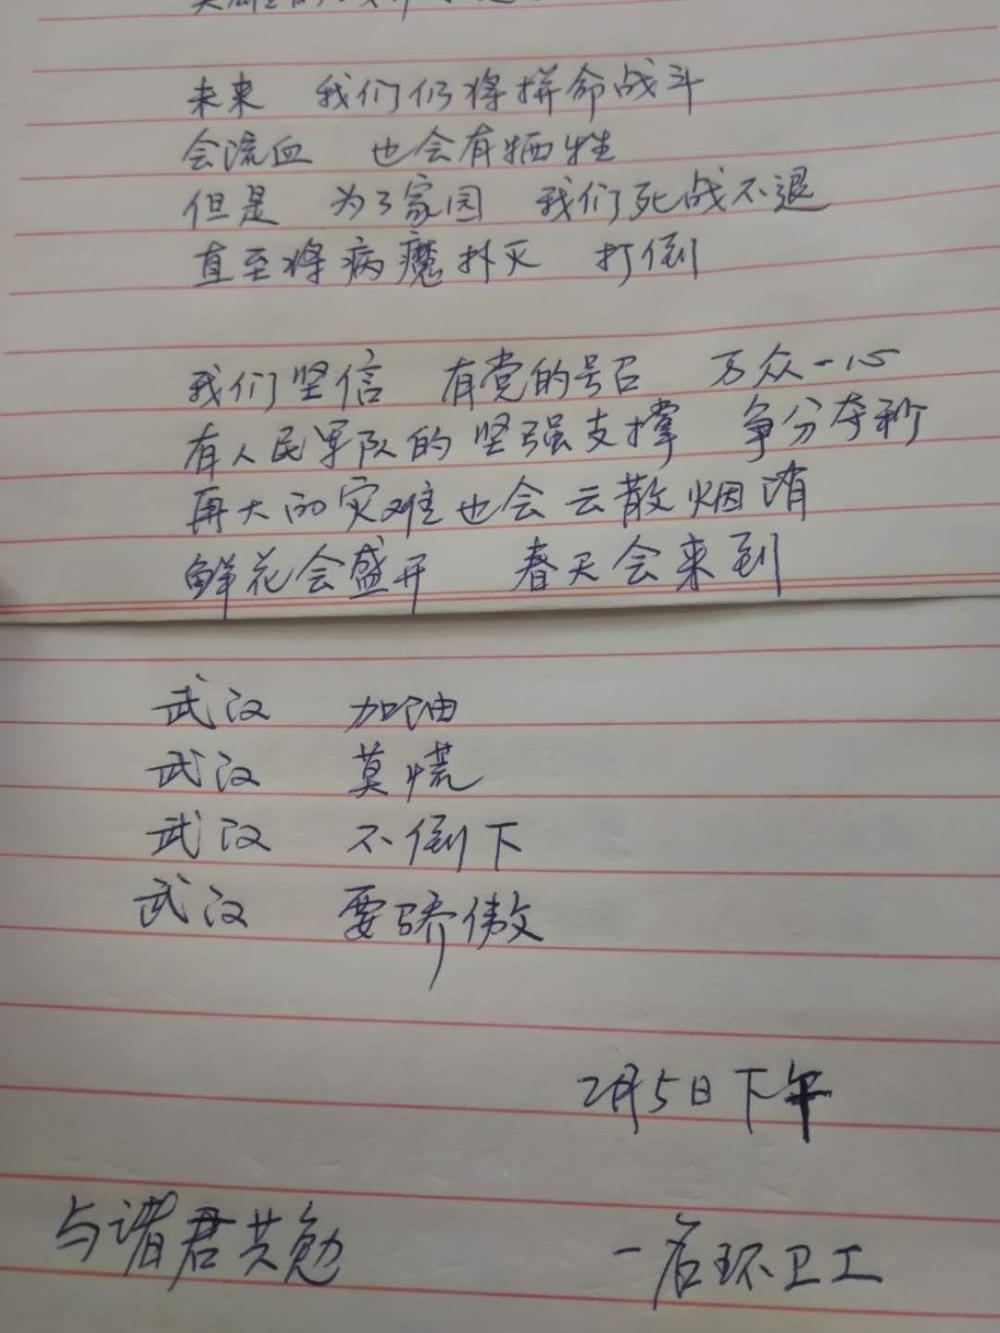 未来 我们仍将拼命战斗
会流血 也会有牺牲
但是 为了家园 我们死战不退
直至将病魔扑灭 打倒
我们坚信 有党的号召 万众一心
有人民军队的坚强支撑 争分夺秒
再大的灾难也会云散烟消
鲜花会盛开 春天会来到
武汉 加油
武汉 莫慌
武汉 不倒下
武汉 要骄傲
2月5日下午
与诸君共勉 一名环卫工